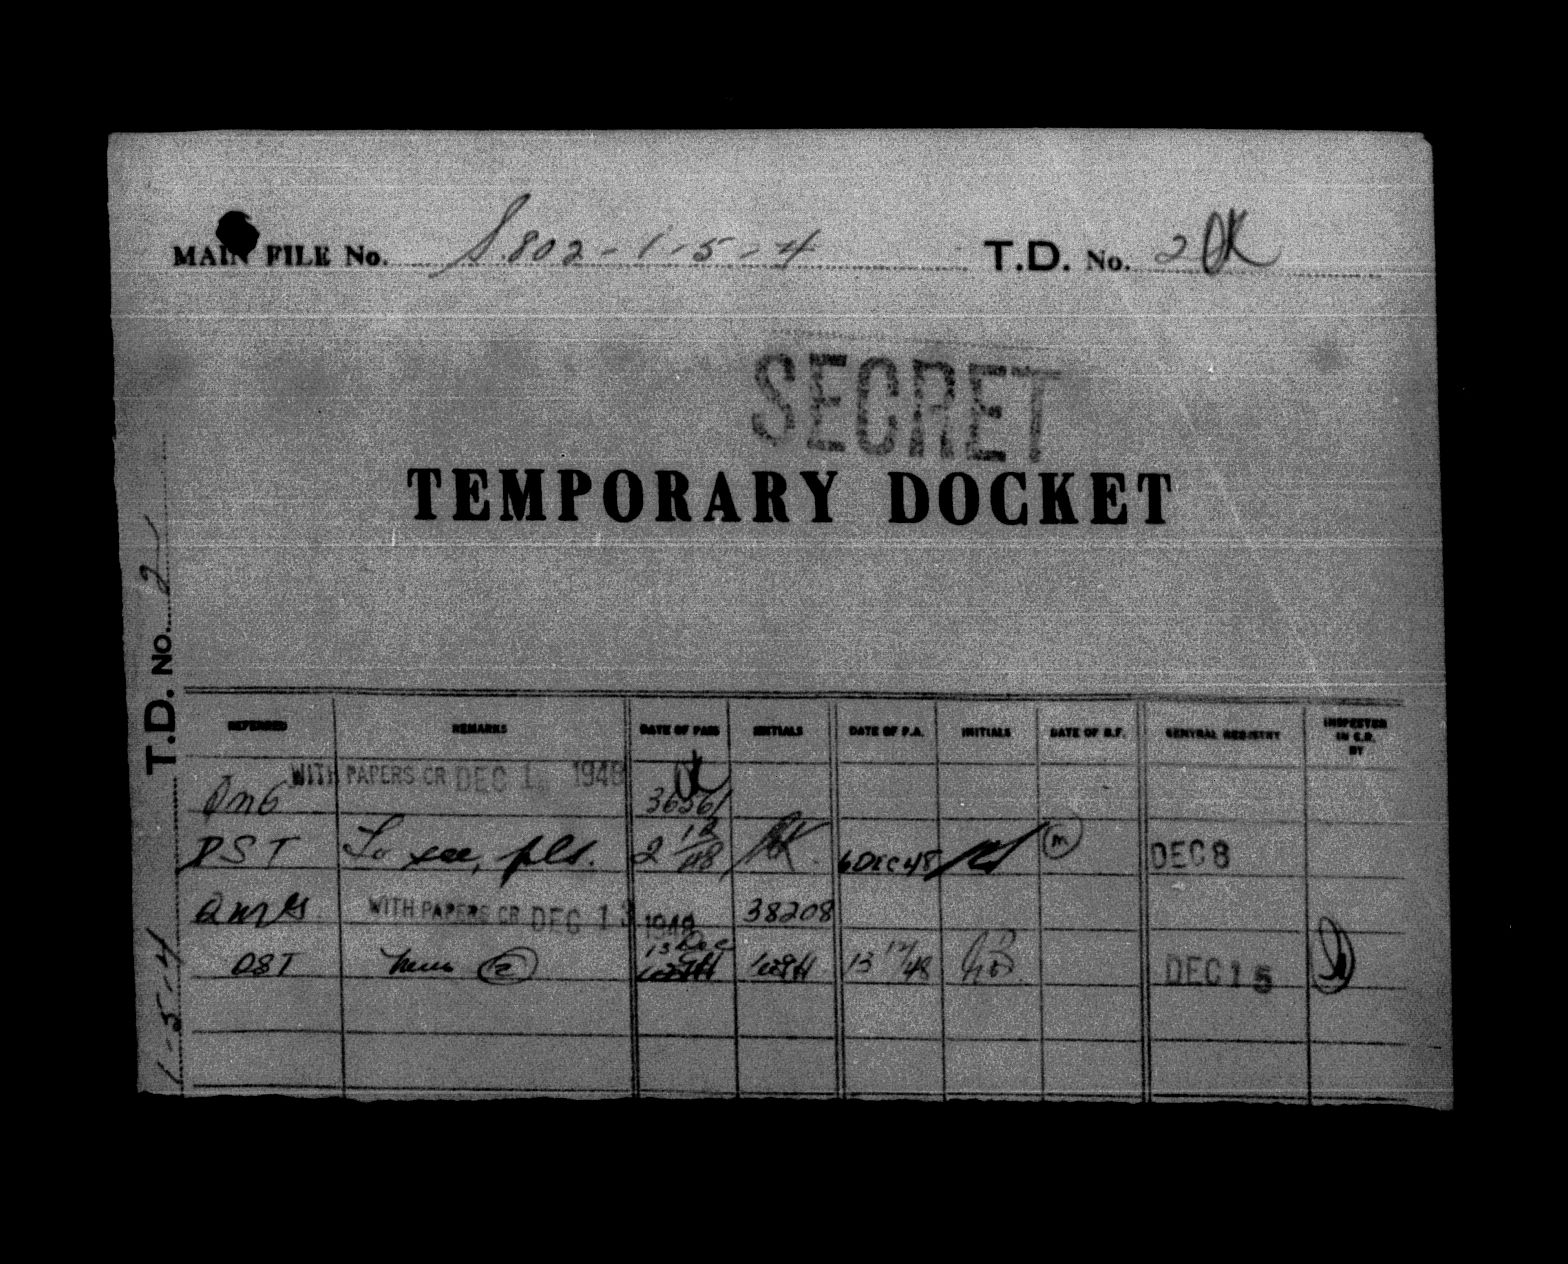 MAIN FILE No. S.802-1-5-4 T.D. No. 2
SECRET
TEMPORARY DOCKET
T.D. No. 2
1-5-4
REFERRED REMARKS DATE OF PASS INITIALS DATE OF P.A. INITIALS DATE OF B.F. CENTRAL REGISTRY INSPECTED IN C.R. BY
WITH PAPERS CR DEC 1 1948
QMG 36561
DST To see, pls. 2 12/48 6 DEC 48 (m) DEC 8
QMG WITH PAPERS CR DEC 13 1948 38208
DST 13 Dec 13 12/48 DEC 15